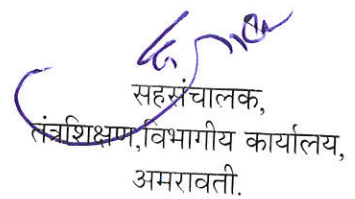 सहसंचालक,
तंत्रशिक्षण,विभागीय कार्यालय,
अमरावती.